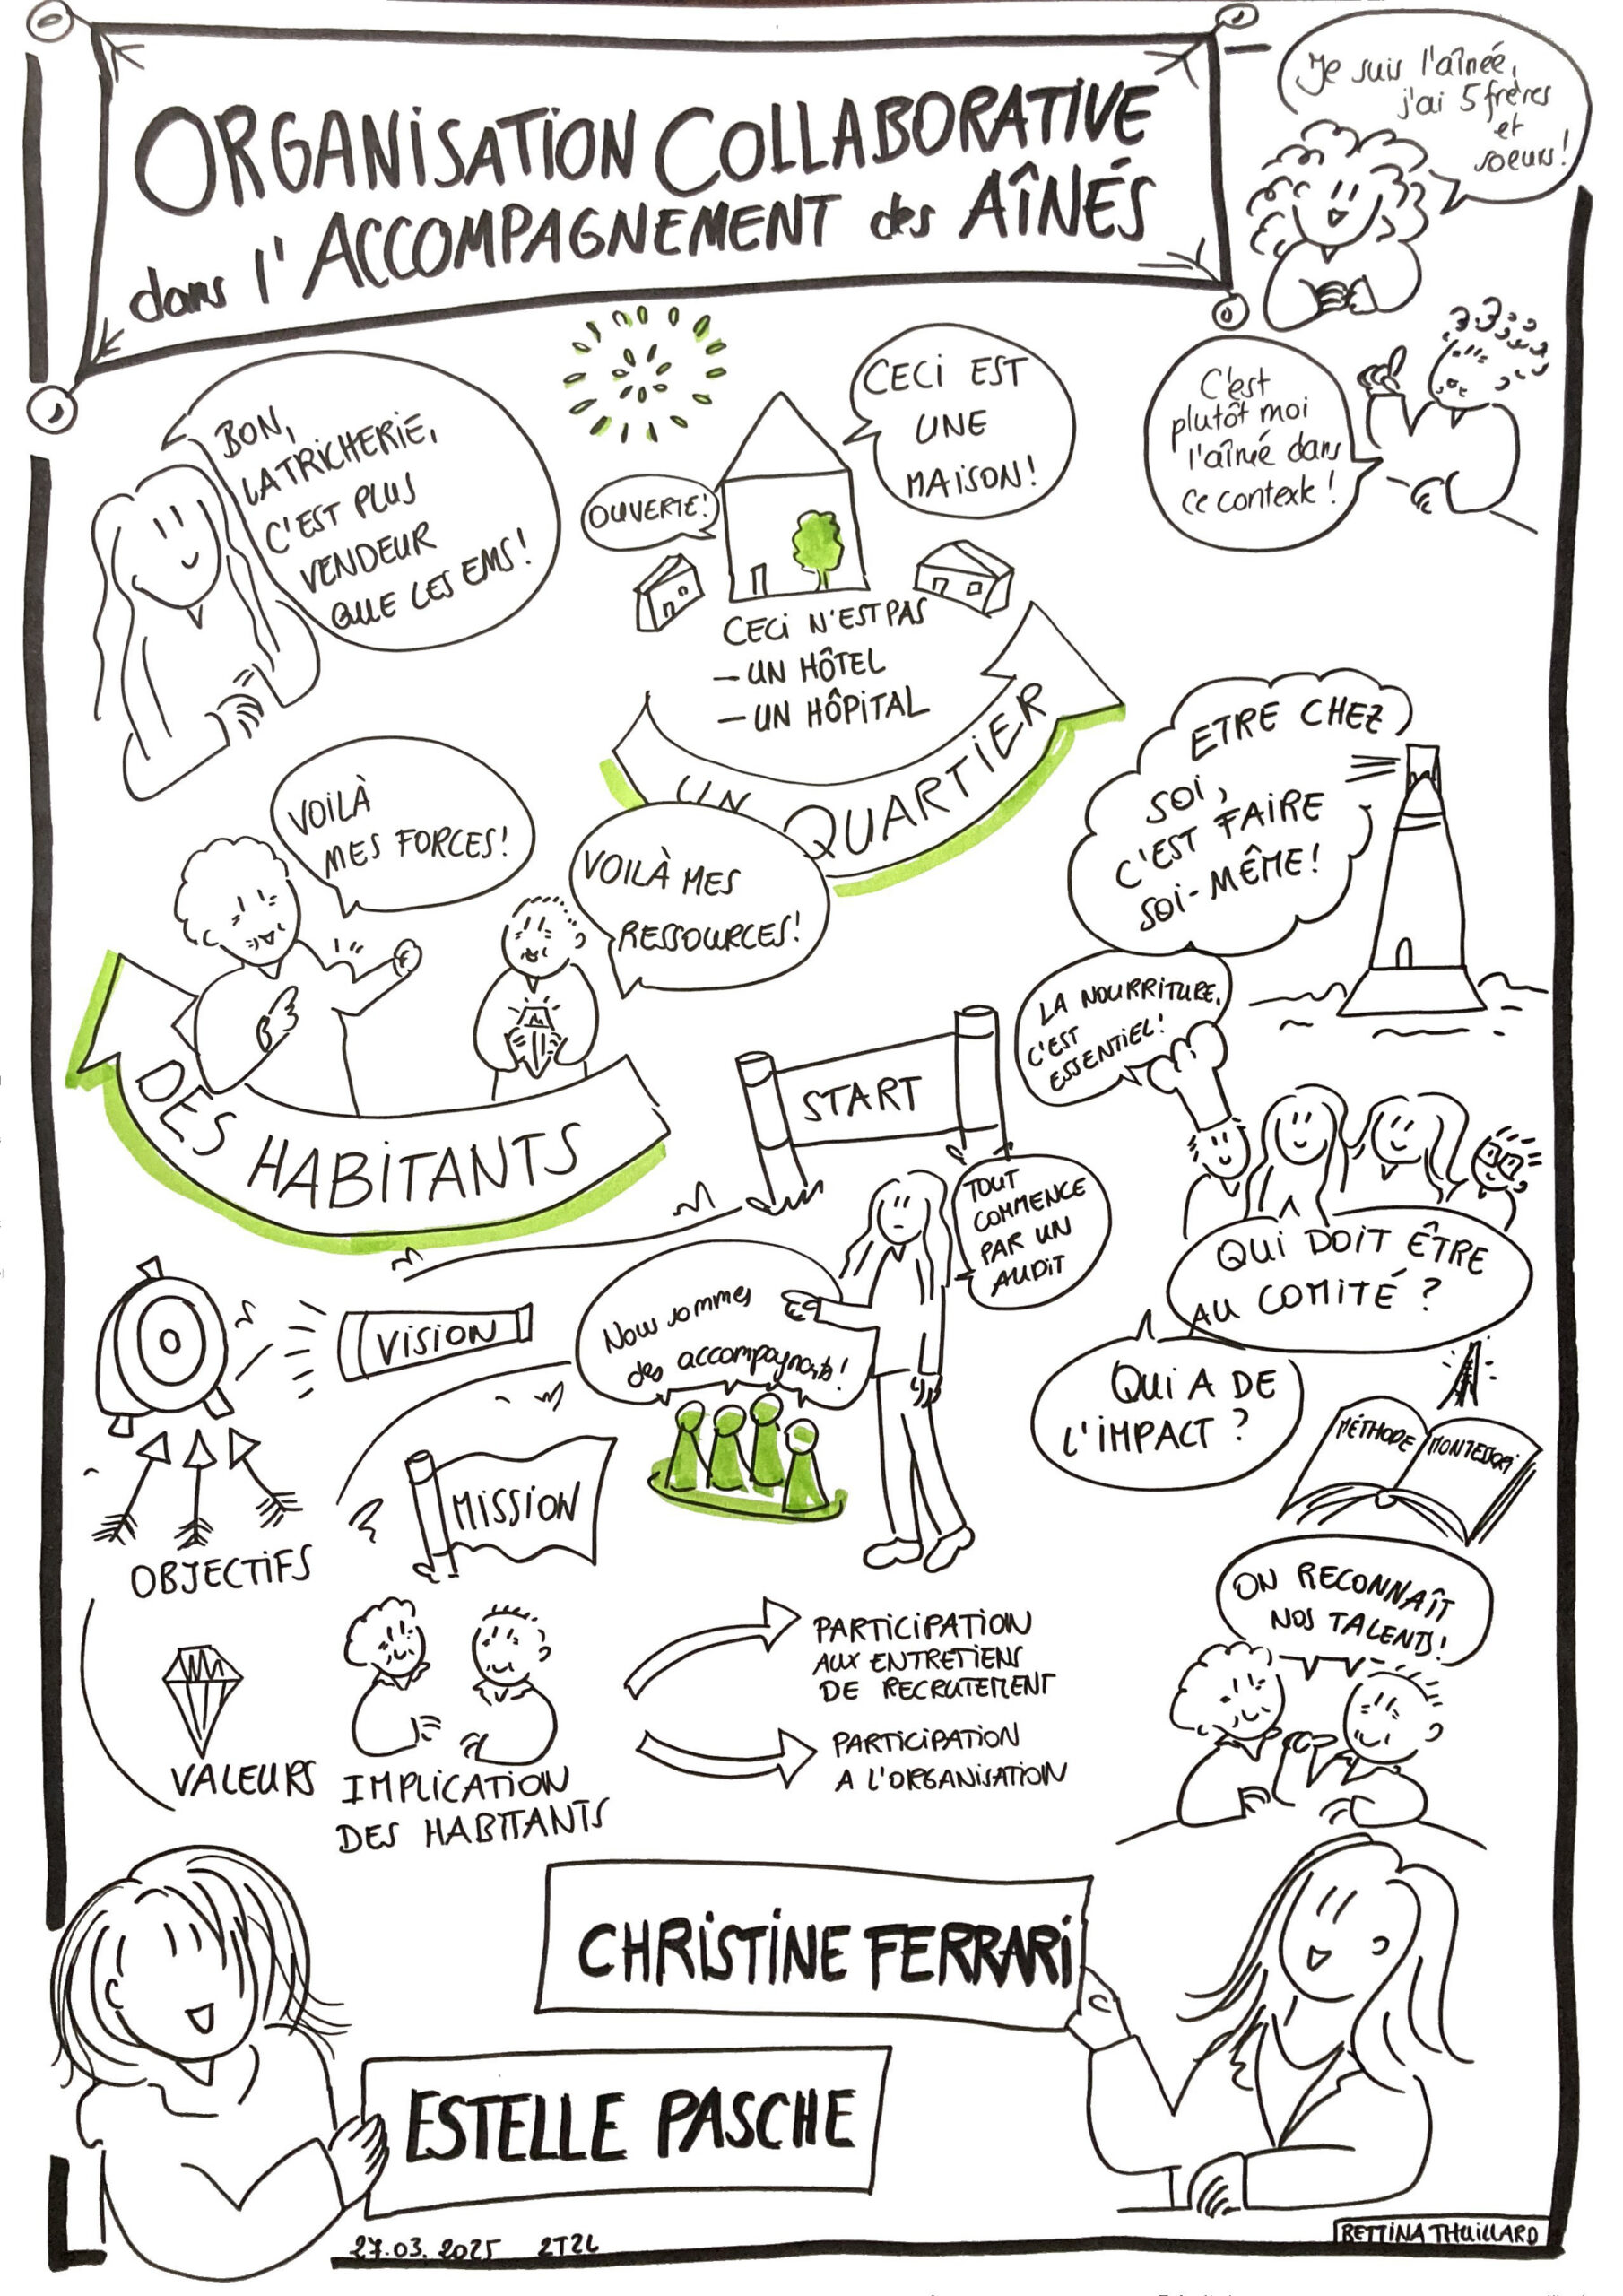 ORGANISATION COLLABORATIVE
dans l'ACCOMPAGNEMENT des AÎNÉS
Je suis l'aînée,
j'ai 5 frères
et
soeurs!
C'est
plutôt moi
l'aîné dans
ce contexte!
BON,
LA TRICHERIE,
C'EST PLUS
VENDEUR
QUE LES EMS!
CECI EST
UNE
MAISON!
OUVERTE!
CECI N'EST PAS
- UN HÔTEL
- UN HÔPITAL
UN QUARTIER
ETRE CHEZ
SOI,
C'EST FAIRE
SOI-MÊME!
VOILÀ
MES FORCES!
VOILÀ MES
RESSOURCES!
DES HABITANTS
LA NOURRITURE,
C'EST
ESSENTIEL!
START
TOUT
COMMENCE
PAR UN
AUDIT
QUI DOIT ÊTRE
AU COMITÉ?
QUI A DE
L'IMPACT?
VISION
Nous sommes
des accompagnants!
MÉTHODE MONTESSORI
MISSION
OBJECTIFS
ON RECONNAÎT
NOS TALENTS!
PARTICIPATION
AUX ENTRETIENS
DE RECRUTEMENT
PARTICIPATION
A L'ORGANISATION
VALEURS
IMPLICATION
DES HABITANTS
CHRISTINE FERRARI
ESTELLE PASCHE
27.03.2025 2T2L
BETTINA THUILLARD